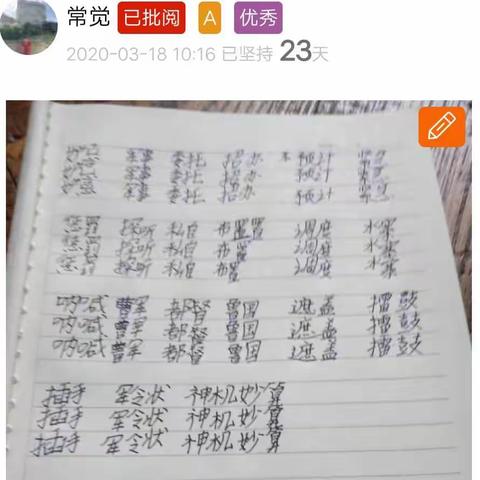 常觉 已批阅 A 优秀
2020-03-18 10:16 已坚持 23天
军事 委托 招办 预计
军事 委托 招办 预计
军事 委托 招办 预计
惩罚 探听 私自 布置置 调度 水寨
惩罚 探听 私自 布置 调度 水寨
惩罚 探听 私自 布置 调度 水寨
呐喊 曹军 都督 曾国 遮盖 擂鼓
呐喊 曹军 都督 曾国 遮盖 擂鼓
呐喊 曹军 都督 曾国 遮盖 擂鼓
插手 军令状 神机妙算
插手 军令状 神机妙算
插手 军令状 神机妙算